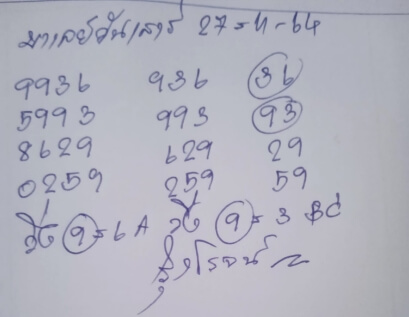 มาเลย์วันเสาร์ 27-11-64
9936 936 36
5993 993 93
8629 629 29
0259 259 59
วิ่ง 9=6 A วิ่ง 9=3 BC